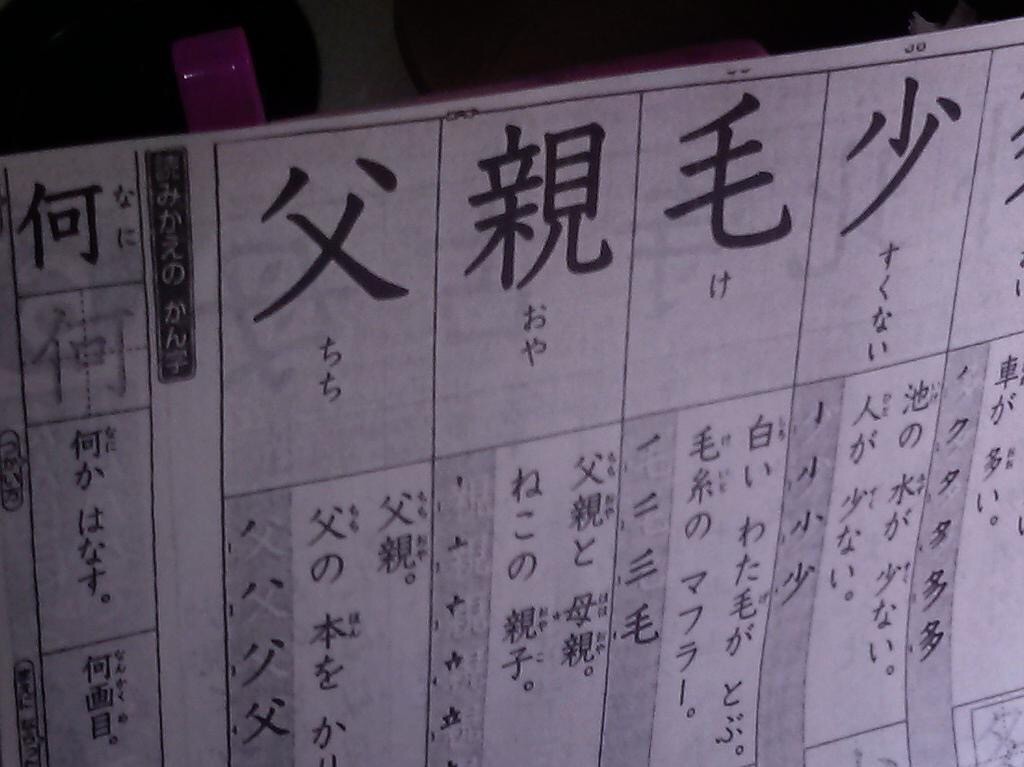 車が 多い。
ノ ク タ 多 多 多
少
すくない
池の 水が 少ない。
人が 少ない。
亅 小 小 少
毛
け
白い わた毛が とぶ。
毛糸の マフラー。
一 二 三 毛
親
おや
父親と 母親。
ねこの 親子。
父
ちち
父親。
父の 本を か
ノ ハ 父 父
読みかえの かん字
何
なに
何
何か はなす。
何画目。